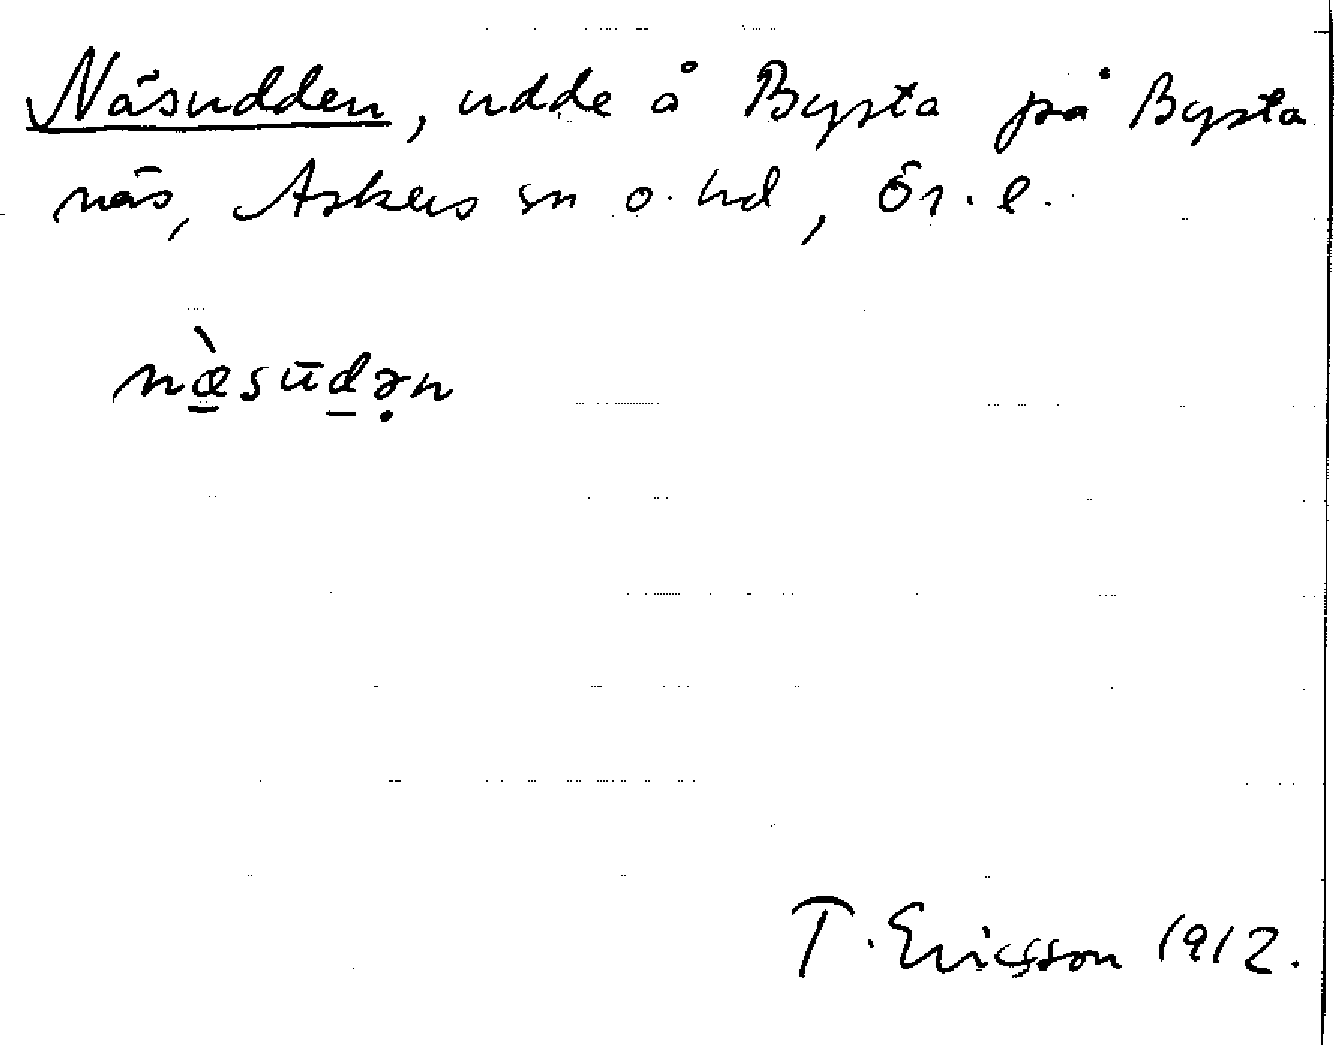 Näsudden, udde å Bysta på Bysta
näs, Askers sn o. hd, Ör. l.
næ̱̀sūḏə̣n
T. Ericsson 1912.